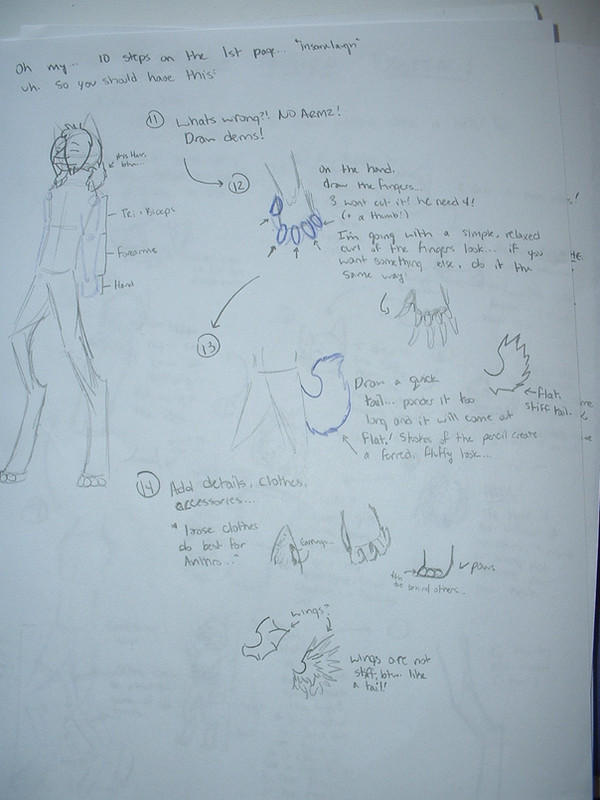 Oh my... 10 steps on the 1st page... "insanelaugh"
uh. So you should have this:
11 Whats wrong?! NO ARMZ!
Draw dems!
btw...
Tri + Biceps
Forearms
Hand
12 On the hand,
draw the fingers...
3 wont cut it! he need 4!
(+ a thumb!)
I'm going with a simple, relaxed
curl of the fingers look... if you
want something else, do it the
same way!
13
Draw a quick
tail... ponder it too
long and it will come out
flat! Strokes of the pencil create
a ferred, fluffy look...
flat,
stiff tail.
14 Add details, clothes,
accessories...
* loose clothes
do best for
Anthro..."
Earrings...
paws
4th
the behind others...
wings?
wings are not
stiff, btw... like
a tail!